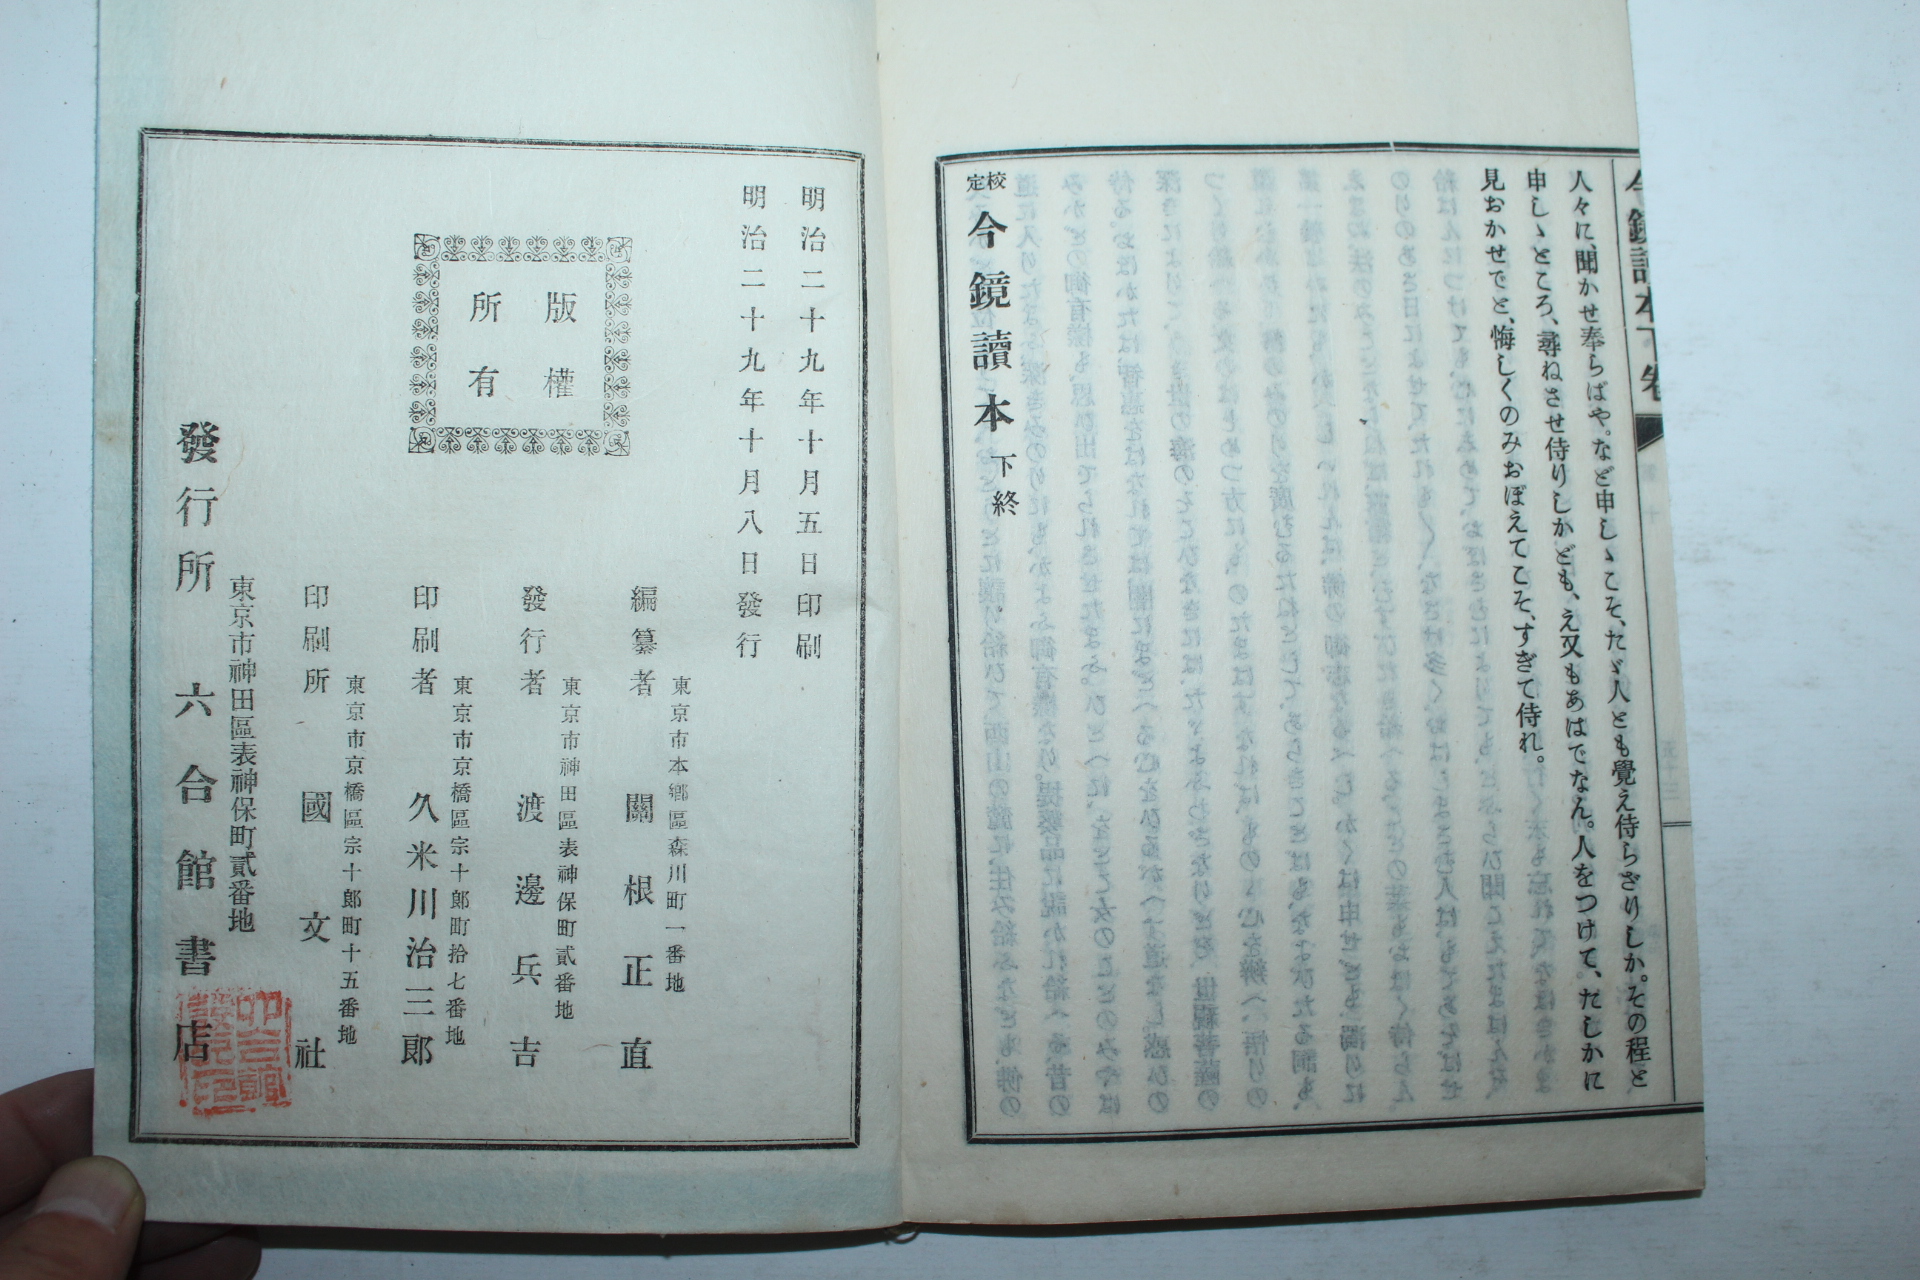 今鏡讀本下卷
人々に、聞かせ奉らばや。など申しゝこそ、たゞ人とも覺え侍らざりしか。その程と
申しゝところ、尋ねさせ侍りしかども、え又もあはでなん。人をつけて、たしかに
見おかせでと、悔しくのみおぼえてこそ、すぎて侍れ。
校定 今鏡讀本 下終
明治二十九年十月五日印刷
明治二十九年十月八日發行
版權
所有
東京市本鄕區森川町一番地
編纂者 關根正直
東京市神田區表神保町貳番地
發行者 渡邊兵吉
東京市京橋區宗十郞町拾七番地
印刷者 久米川治三郞
東京市京橋區宗十郞町十五番地
印刷所 國文社
東京市神田區表神保町貳番地
發行所 六合館書店